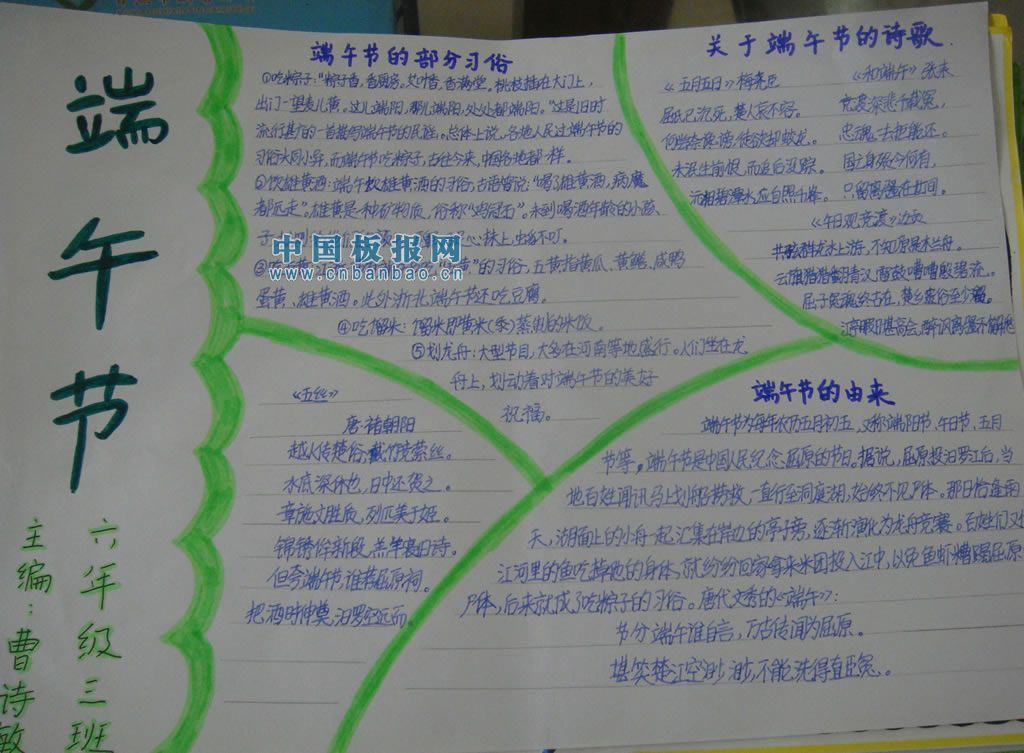 端午节
六年级三班
主编：曹诗敏
端午节的部分习俗
①吃粽子："粽子香，香厨房。艾叶香，香满堂。桃枝插在大门上，
出门一望麦儿黄。这儿端阳，那儿端阳，处处都端阳。"这是旧时
流行甚广的一首描写端午节的民谣。总体上说，各地人民过端午节的
习俗大同小异，而端午节吃粽子，古往今来，中国各地都一样。
②饮雄黄酒：端午饮雄黄酒的习俗，古语曾说："喝了雄黄酒，病魔
都远走"。雄黄是一种矿物质，俗称"鸡冠石"。未到喝酒年龄的小孩
子
心抹上，虫蛇不叮。
③吃
黄"的习俗，五黄指黄瓜、黄鳝、咸鸭
蛋黄、雄黄酒。此外浙北端午节还吃豆腐。
④吃馏米：馏米即黄米(黍)蒸出的米饭。
⑤划龙舟：大型节目，大多在河南等地盛行。人们坐在龙
舟上，划动着对端午节的美好
祝福。
中国板报网
www.cnbanbao.cn
关于端午节的诗歌
《五月五日》梅尧臣
屈氏已沉死，楚人哀不容。
何尝奈谗谤，徒欲却蛟龙。
未泯生前恨，而追后没踪。
沅湘碧潭水，应自照千峰。
《和端午》张耒
竞渡深悲千载冤，
忠魂一去讵能还。
国亡身殒今何有，
只留离骚在世间。
《午日观竞渡》边贡
共骇群龙水上游，不知原是木兰舟。
云旗猎猎翻青汉，雷鼓嘈嘈殷碧流。
屈子冤魂终古在，楚乡遗俗至今留。
江亭暇日堪高会，醉讽离骚不解愁
《五丝》
唐·褚朝阳
越人传楚俗，截竹竞萦丝。
水底深休也，日中还贺之。
章施文胜质，列匹美于姬。
锦绣侔新段，羔羊寝旧诗。
但夸端午节，谁荐屈原祠。
把酒时伸奠，汨罗空远而。
端午节的由来
端午节为每年农历五月初五，又称端阳节、午日节、五月
节等。端午节是中国人民纪念屈原的节日。据说，屈原投汨罗江后，当
地百姓闻讯马上划船捞救，一直行至洞庭湖，始终不见尸体。那日恰逢雨
天，湖面上的小舟一起汇集在岸边的亭子旁，逐渐演化为龙舟竞赛。百姓们又怕
江河里的鱼吃掉他的身体，就纷纷回家拿来米团投入江中，以免鱼虾糟蹋屈原
尸体，后来就成了吃粽子的习俗。唐代文秀的《端午》：
节分端午谁自言，万古传闻为屈原。
堪笑楚江空渺渺，不能洗得直臣冤。